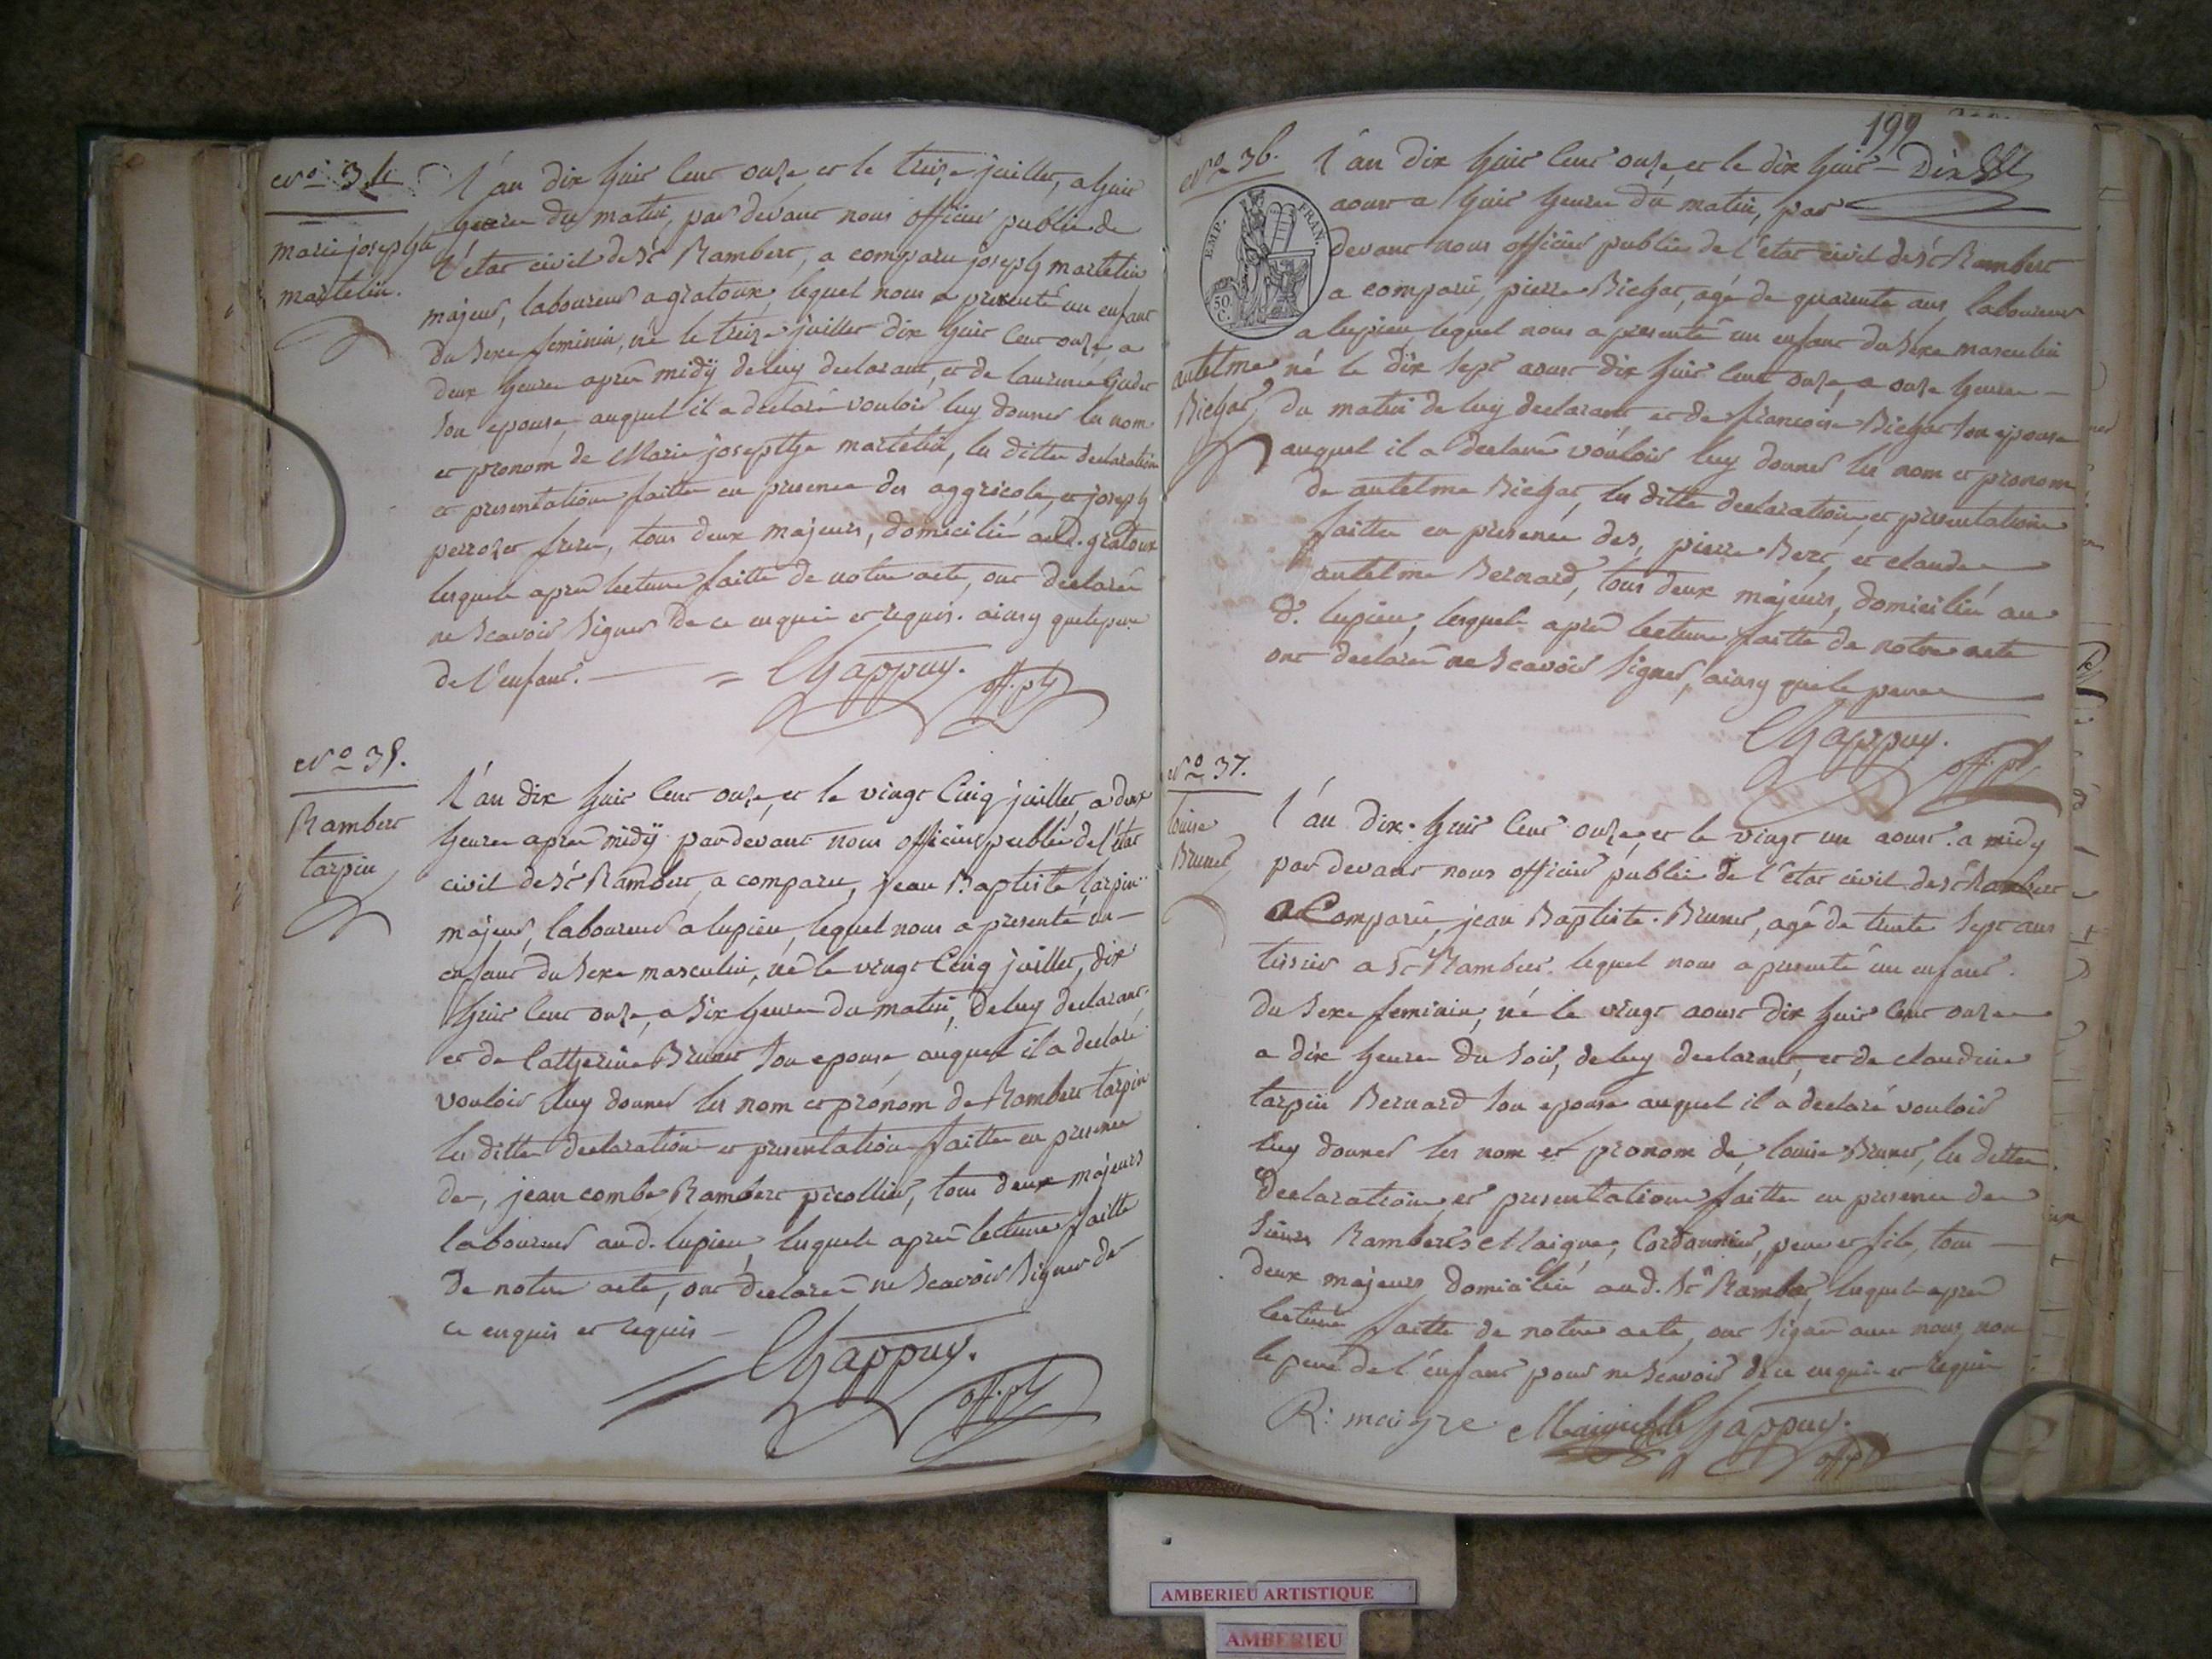 No 34
marie josephte
martelin.
L'an dix huit cent onze et le treize juillet, a huit
heures du matin, par devant nous officier public de
l'état civil de St Rambert, a comparu joseph martelin
majeur, laboureur a gratoux, lequel nous a presenté un enfant
du sexe feminin, né le treize juillet dix huit cent onze, a
deux heures apres midÿ de luy declarant, et de laurence
son epouse, auquel il a declaré vouloir luy donner les nom
et pronom de Marie josephte martelin, les dittes declaration
et presentation faittes en presence des aggricole, et joseph
perrozet freres, tous deux majeurs, domiciliés aud. gratoux
lesquels apres lecture faitte de notre acte, ont declarés
ne scavoir signer de ce enquis et requis. ainsy que le pere
de l'enfant. = Chappuy. off. pb
No 35.
Rambert
tarpin
L'an dix huit cent onze, et le vingt cinq juillet, a deux
heures apres midÿ par devant nous officier public de l'état
civil de St Rambert, a comparu, jean Baptiste tarpin
majeur, laboureur a lupieu, lequel nous a presenté un
enfant du sexe masculin, né le vingt cinq juillet, dix
huit cent onze, a six heures du matin, de luy declarant
et de Catherine Brunet son epouse auquel il a declaré
vouloir luy donner les nom et pronom de Rambert tarpin
les dittes declaration et presentation faittes en presence
de, jean combe Rambert picollier, tous deux majeurs
laboureurs aud. lupieu, lesquels apres lecture faitte
de notre acte, ont declarés ne scavoir signer de
ce enquis et requis
= Chappuy.
off. pb
199
No 36.
L'an dix huit cent onze, et le dix huit
aoust a huit heures du matin, par
EMP. FRAN.
50 C.
devant nous officier public de l'état civil de St Rambert
a comparu, pierre Bichat, agé de quarente ans, laboureur
a lupieu, lequel nous a presenté un enfant du sexe masculin
antelme
Bichat
né le dix sept aoust dix huit cent onze, a onze heures
du matin de luy declarant et de francoise Bichat son epouse
auquel il a declaré vouloir luy donner les nom et pronom
de antelme Bichat, les dittes declaration, et presentation
faittes en presence des, pierre Bert, et claude
antelme Bernard, tous deux majeurs, domiciliés au
d. lupieu, lesquels apres lecture faitte de notre acte
ont declarés ne scavoir signer, ainsy que le pere
Chappuy.
off. pb
No 37.
louise
Brunet
L'an dix huit cent onze, et le vingt un aoust a midy
par devant nous officier public de l'état civil de St Rambert
a Comparu, jean Baptiste Brunet, agé de trente sept ans
tissier a St Rambert. lequel nous a presenté un enfant
du sexe feminin, né le vingt aoust dix huit cent onze
a dix heures du soir, de luy declarant, et de claudine
tarpin Bernard son epouse auquel il a declaré vouloir
luy donner les nom et pronom de, louise Brunet, les dittes
declaration et presentation faittes en presence de
sieurs Ramberts Maigre, Cordonnier, pere et fils, tous
deux majeurs domiciliés aud. St Rambert, lesquels apres
lecture faitte de notre acte, ont signé avec nous, non
le pere de l'enfant pour ne scavoir de ce enquis et requis
R: maigre Maigre fils Chappuy.
off. pb
AMBERIEU ARTISTIQUE
AMBERIEU